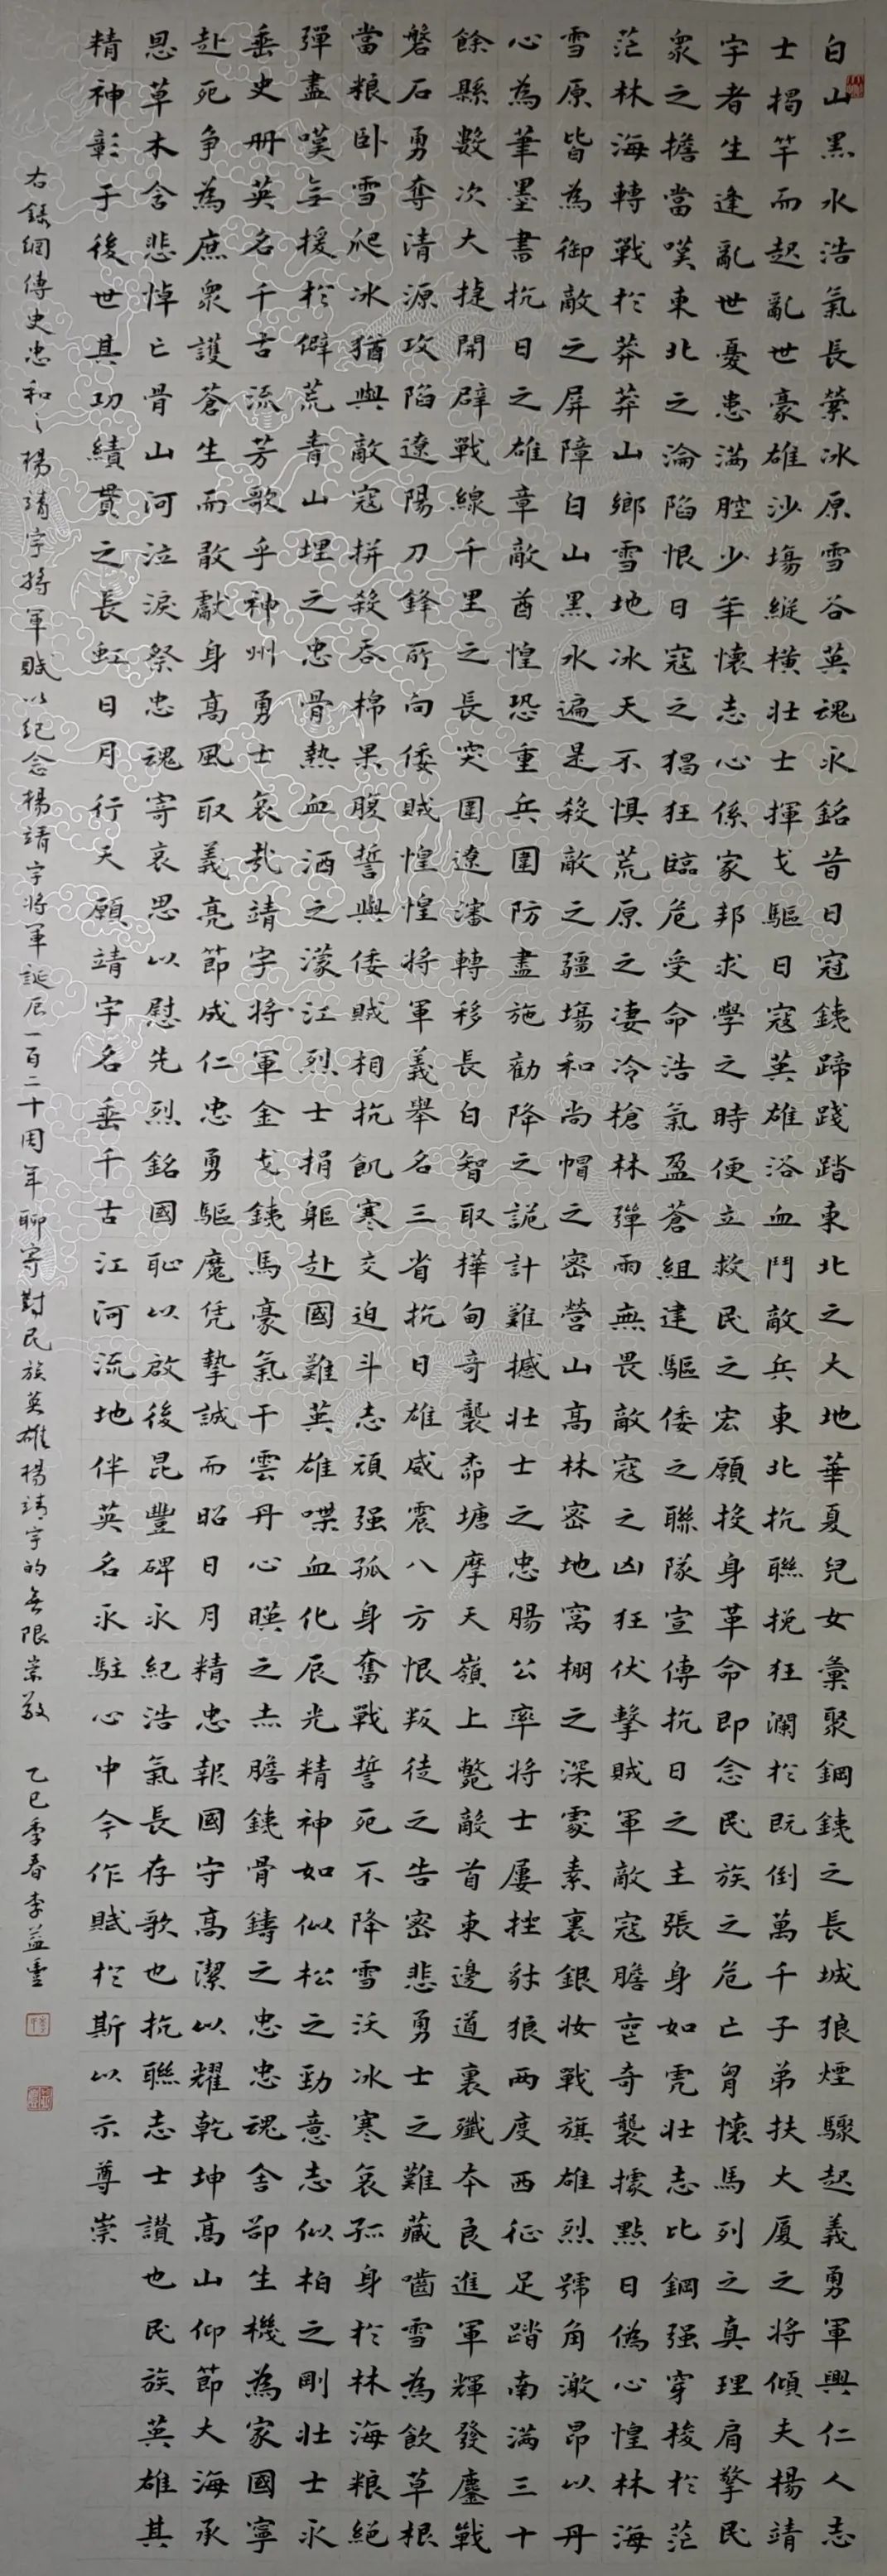 白山黑水浩氣長縈冰原雪谷英魂永銘昔日寇鐵蹄踐踏東北之大地華夏兒女彙聚鋼鐵之長城狼煙驟起義勇軍興仁人志
士揭竿而起亂世豪雄沙場縱橫壯士揮戈驅日寇英雄浴血鬥敵兵東北抗聯挽狂瀾於既倒萬千子弟扶大厦之將傾夫楊靖
宇者生逢亂世憂患滿腔少年懷志心係家邦求學之時便立救民之宏願投身革命即念民族之危亡胷懷馬列之真理肩擎民
衆之擔當嘆東北之淪陷恨日寇之猖狂臨危受命浩氣盈蒼組建驅倭之聯隊宣傳抗日之主張身如虎壯志比鋼强穿梭於茫
茫林海轉戰於莽莽山鄉雪地冰天不惧荒原之凄冷槍林彈雨無畏敵寇之凶狂伏擊賊軍敵寇膽喪奇襲據點日偽心惶林海
雪原皆為御敵之屏障白山黑水遍是殺敵之疆場和尚帽之密營山高林密地窩棚之深處素裹銀妝戰旗雄烈號角激昂以丹
心為筆墨書抗日之雄章敵酋惶恐重兵圍防盡施勸降之詭計難撼壯士之忠腸公率將士屢挫豺狼两度西征足踏南满三十
餘縣數次大捷開辟戰線千里之長突圍遼瀋轉移長白智取樺甸奇襲柰塘摩天嶺上斃敵首東邊道裏殲本良進軍輝發鏖戰
磐石勇奪清源攻陷遼陽刀鋒所向倭賊惶惶將軍義舉名三省抗日雄威震八方恨叛徒之告密悲勇士之難藏嚙雪為飲草根
當粮卧雪爬冰猶與敵寇拼殺吞棉果腹誓與倭賊相抗飢寒交迫斗志頑强孤身奮戰誓死不降雪沃冰寒哀孤身於林海粮絕
彈盡嘆無援於僻荒青山埋之忠骨熱血洒之濛江烈士捐軀赴國難英雄喋血化辰光精神如似松之勁意志似柏之剛壯士永
垂史册英名千古流芳歌乎神州勇士哀哉靖宇將軍金戈鐵馬豪氣干雲丹心暎之赤膽鐵骨鑄之忠忠魂舍卻生機為家國寧
赴死争為庶衆護蒼生而敢獻身高風取義亮節成仁忠勇驅魔凭摯誠而昭日月精忠報國守高潔以耀乾坤高山仰節大海承
恩草木含悲悼亡骨山河泣淚祭忠魂寄哀思以慰先烈銘國恥以啟後昆豐碑永紀浩氣長存歌也抗聯志士讚也民族英雄其
精神彰于後世其功績貫之長虹日月行天願靖宇名垂千古江河流地伴英名永駐心中今作賦於斯以示尊崇
右錄網傳史忠和〻楊靖宇將軍賦以紀念楊靖宇將軍誕辰一百二十周年聊寄對民族英雄楊靖宇的無限崇敬 乙巳季春李益重